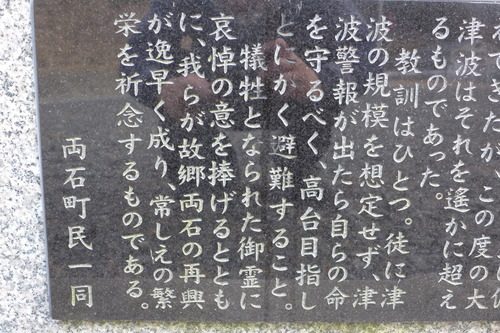 れてきたが、この度の大
津波はそれを遙かに超え
るものであった。
教訓はひとつ。徒に津
波の規模を想定せず、津
波警報が出たら自らの命
を守るべく、高台目指し
とにかく避難すること。
犠牲となられた御霊に
哀悼の意を捧げるととも
に、我らが故郷両石の再興
が逸早く成り、常しえの繁
栄を祈念するものである。
両石町民一同